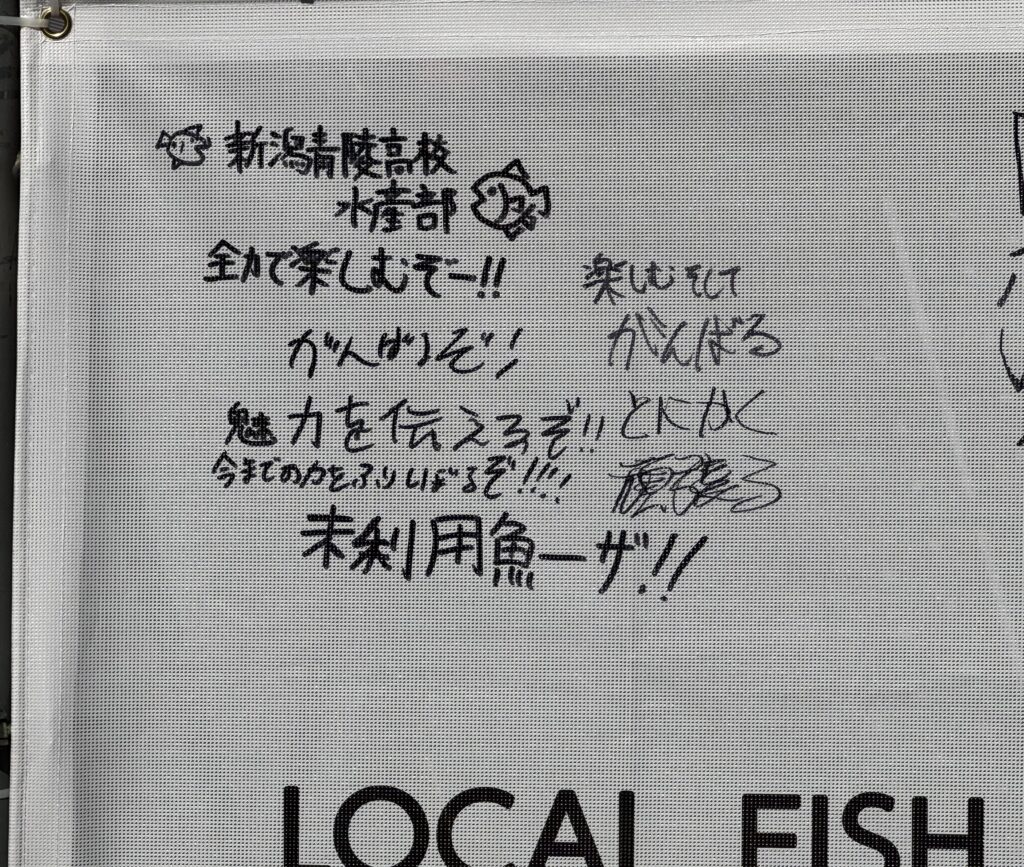 新潟青陵高校
水産部
全力で楽しむぞー!!
がんばるぞ!
魅力を伝えるぞ!!
今までの力をふりしぼるぞ!!!!
未利用魚ーザ!!
楽しむそして
がんばる
とにかく
頑張る
LOCAL FISH